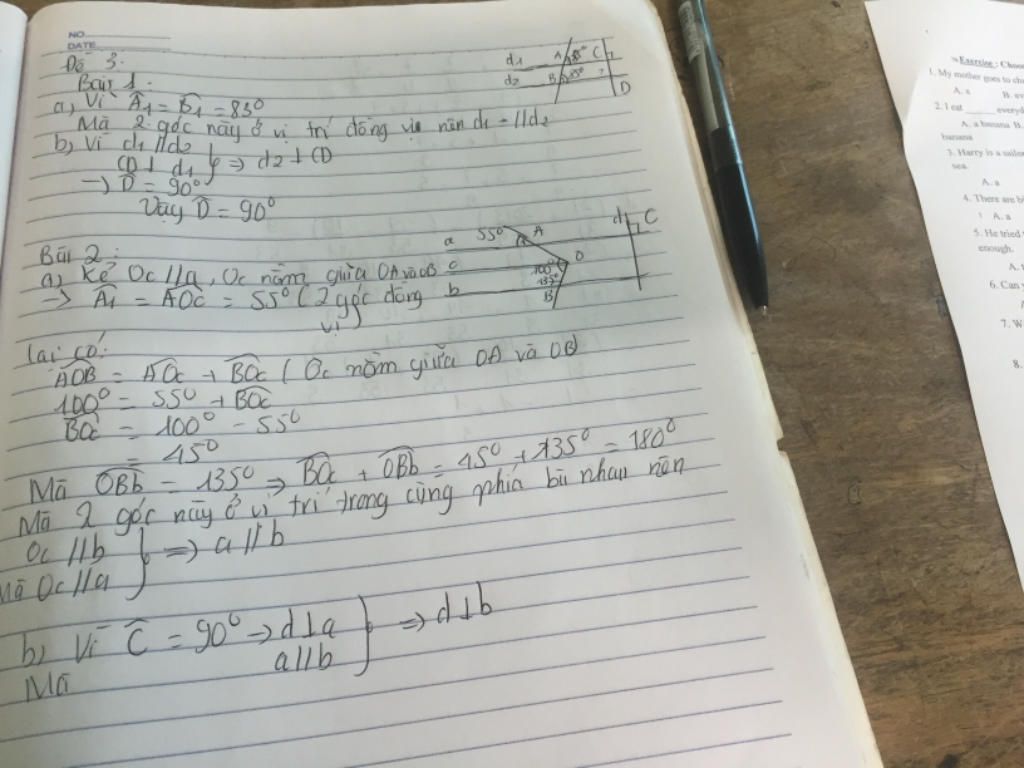 NO.
DATE
Đề 3.
Bài 1:
a, Vì Â1 = B̂1 = 85°
Mà 2 góc này ở vị trí đồng vị nên d1 // d2
b, Vì d1 // d2
CD ⊥ d1 } => d2 ⊥ CD
-> D̂ = 90°
Vậy D̂ = 90°
d1 A 85° C
d2 B 85° ?
D
Bài 2:
a, Kẻ Oc // a, Oc nằm giữa OA và OB
-> Â1 = AOc = 55° (2 góc đồng
vị)
a 55° A d C
c O
100°
b 135°
B
lại có:
AOB = AOc + BOc ( Oc nằm giữa OA và OB)
100° = 55° + BOc
BOc = 100° - 55°
= 45°
Mà OBb = 135° => BOc + OBb = 45° + 135° = 180°
Mà 2 góc này ở vị trí trong cùng phía bù nhau nên
Oc // b
Mà Oc // a } => a // b
b, Vì Ĉ = 90° -> d ⊥ a
Mà a // b } => d ⊥ b
Exercise : Choo
1. My mother goes to cho
A. a B. ev
2. I eat ____ everyd
A. a banana B.
banana
3. Harry is a sailo
sea.
A. a
4. There are bl
A. a
5. He tried
enough.
6. Can y
7. W
8.